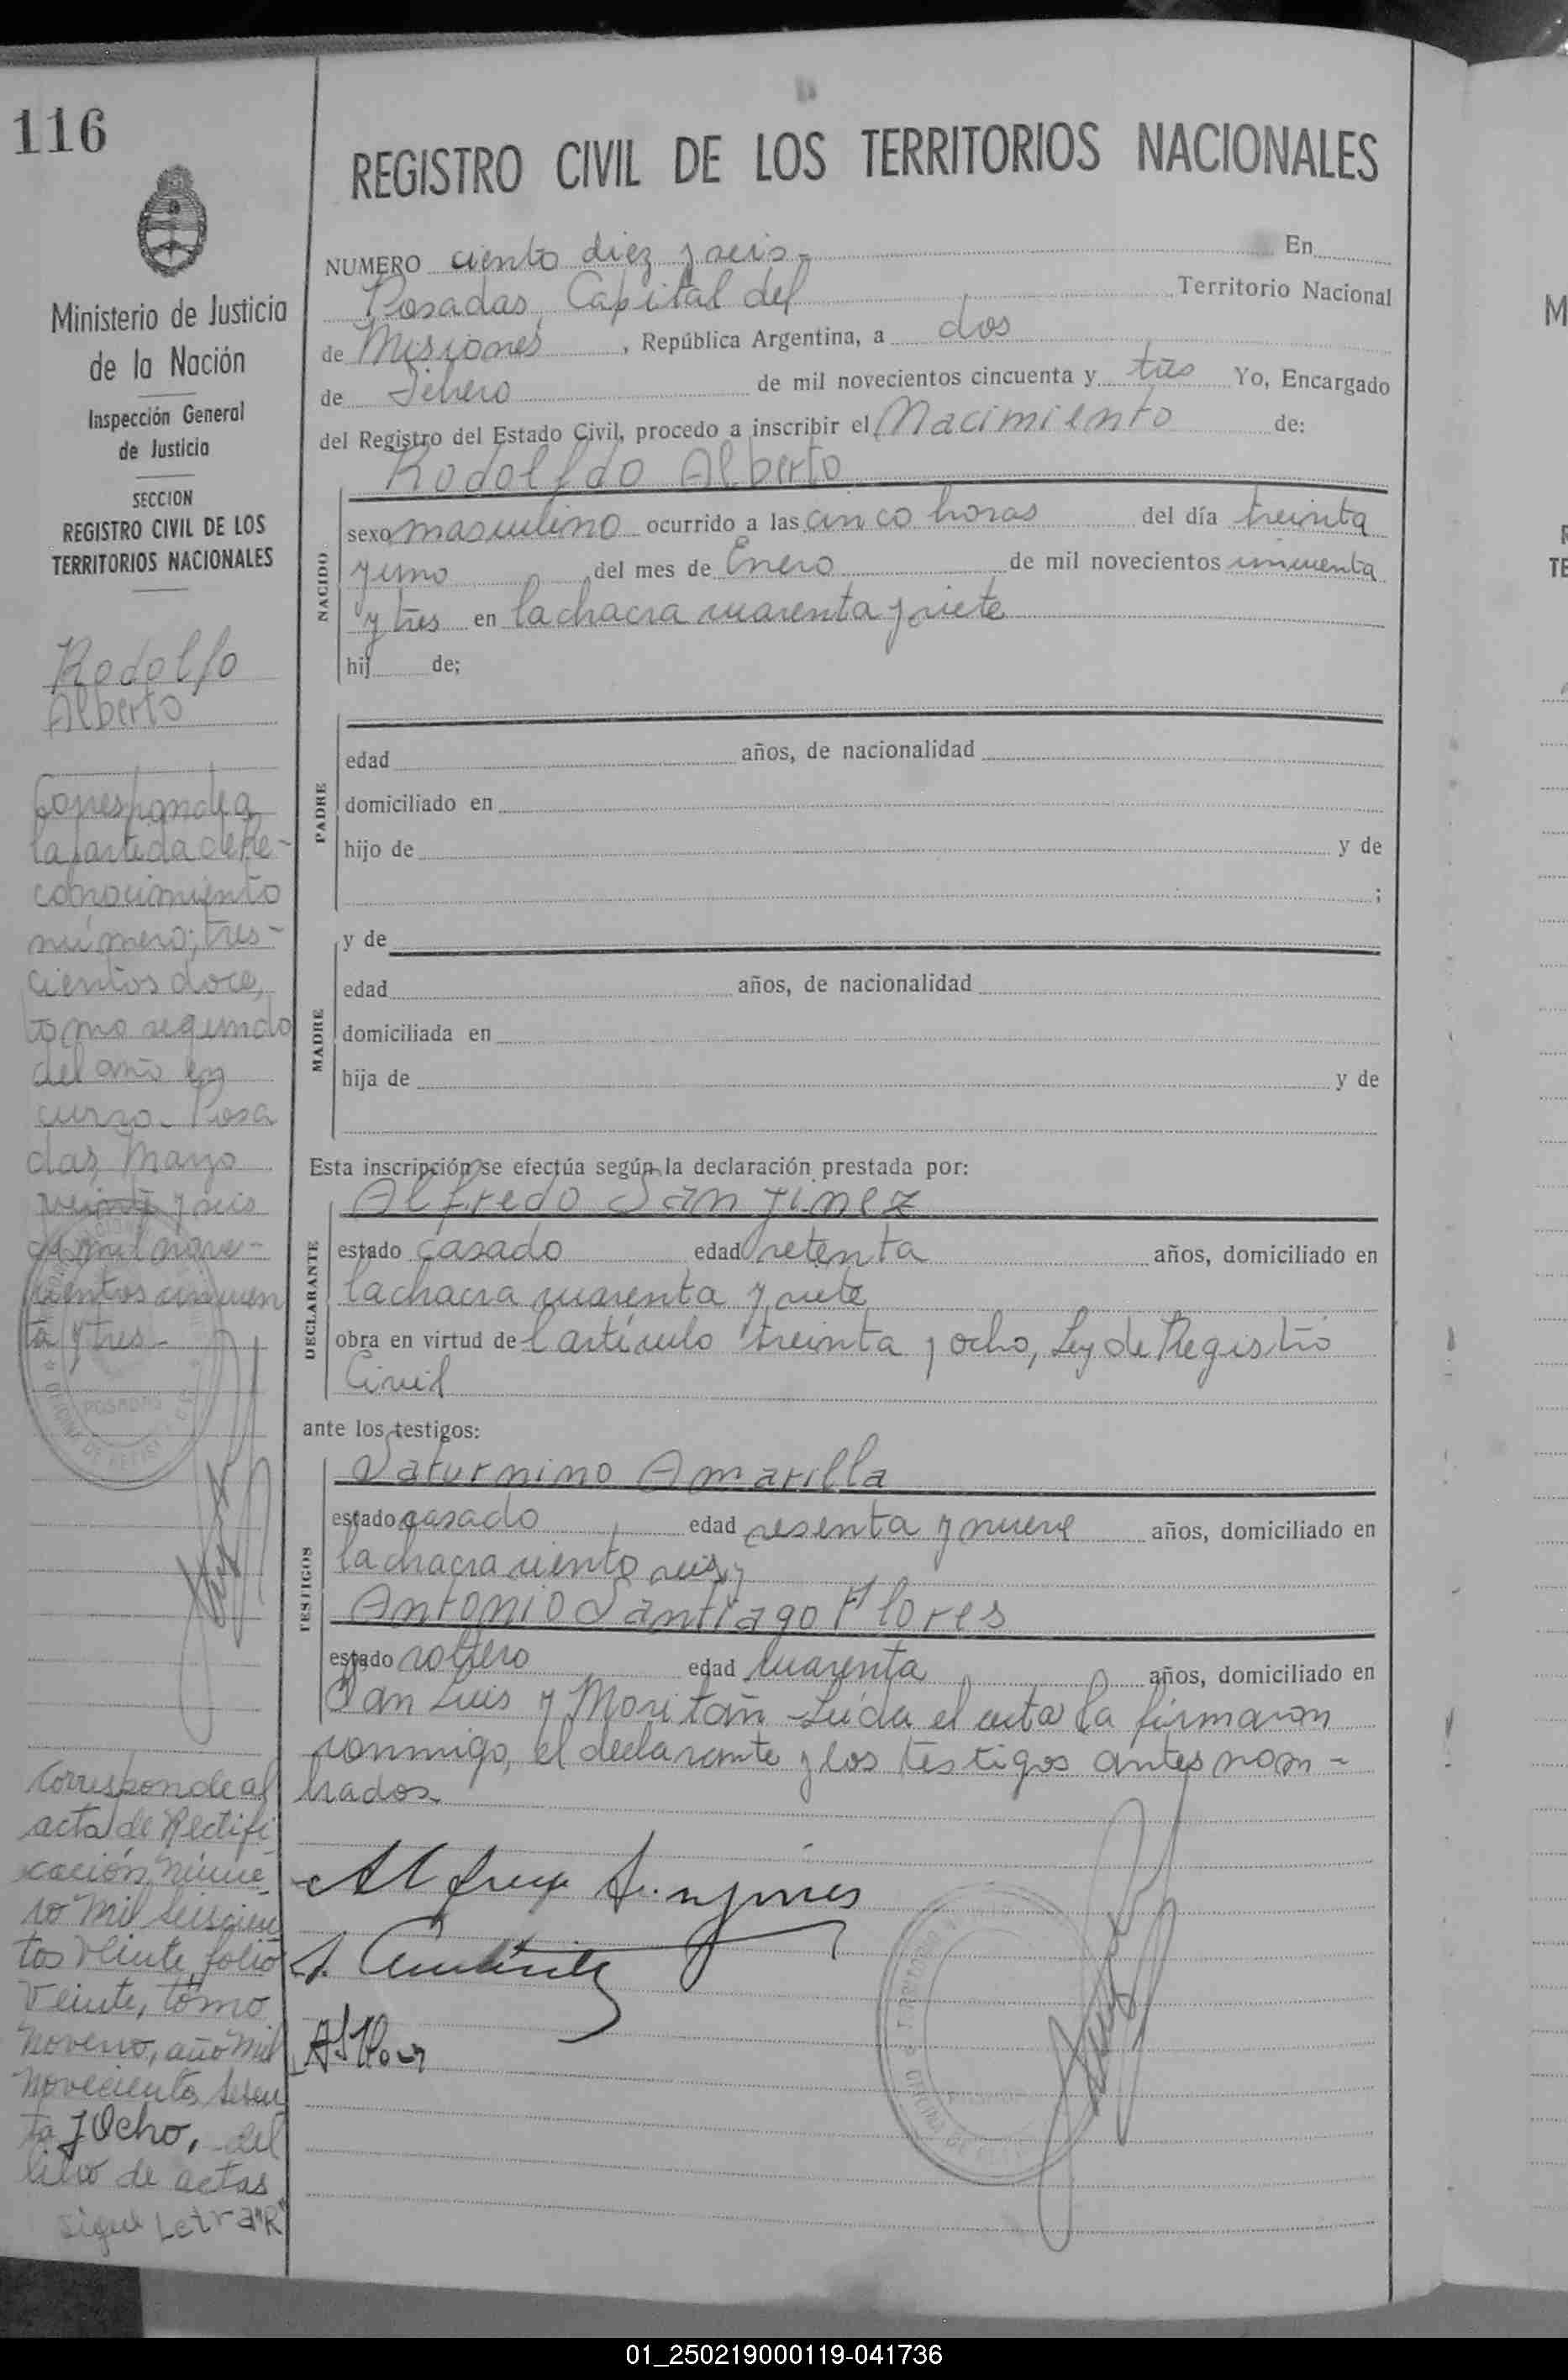 116
Ministerio de Justicia
de la Nación
Inspección General
de Justicia
SECCION
REGISTRO CIVIL DE LOS
TERRITORIOS NACIONALES
Rodolfo
Alberto
Corresponde a
la partida de Re-
conocimiento
número; tres-
cientos doce,
tomo segundo
del año en
curso. Posa
das, Mayo
veinte y seis
de mil nove-
cientos cincuen
ta y tres-
POSADAS
Corresponde al
acta de Rectifi
cación, núme-
ro mil seiscien
tos veinte, folio
veinte, tomo
noveno, año mil
novecientos sesen
ta y Ocho, del
libro de actas
sigue Letra "R"
REGISTRO CIVIL DE LOS TERRITORIOS NACIONALES
NUMERO ciento diez y seis- En
Posadas, Capital del Territorio Nacional
de Misiones, República Argentina, a dos
de Febrero de mil novecientos cincuenta y tres Yo, Encargado
del Registro del Estado Civil, procedo a inscribir el Nacimiento de:
Rodolfdo Alberto
NACIDO
sexo masculino ocurrido a las cinco horas del día treinta
y uno del mes de Enero de mil novecientos cincuenta
y tres en la chacra cuarenta y siete
hij de;
PADRE
edad años, de nacionalidad
domiciliado en
hijo de y de
;
MADRE
y de
edad años, de nacionalidad
domiciliada en
hija de y de
Esta inscripción se efectúa según la declaración prestada por:
Alfredo San Jinez
DECLARANTE
estado casado edad setenta años, domiciliado en
la chacra cuarenta y siete
obra en virtud del artículo treinta y ocho, Ley de Registro
Civil
ante los testigos:
TESTIGOS
Saturnino Amarilla
estado casado edad sesenta y nueve años, domiciliado en
la chacra ciento seis, y
Antonio Santiago Flores
estado soltero edad cuarenta años, domiciliado en
San Luis y Moritán - Leída el acta la firmaron
conmigo, el declarante y los testigos antes nom-
brados.
01_250219000119-041736